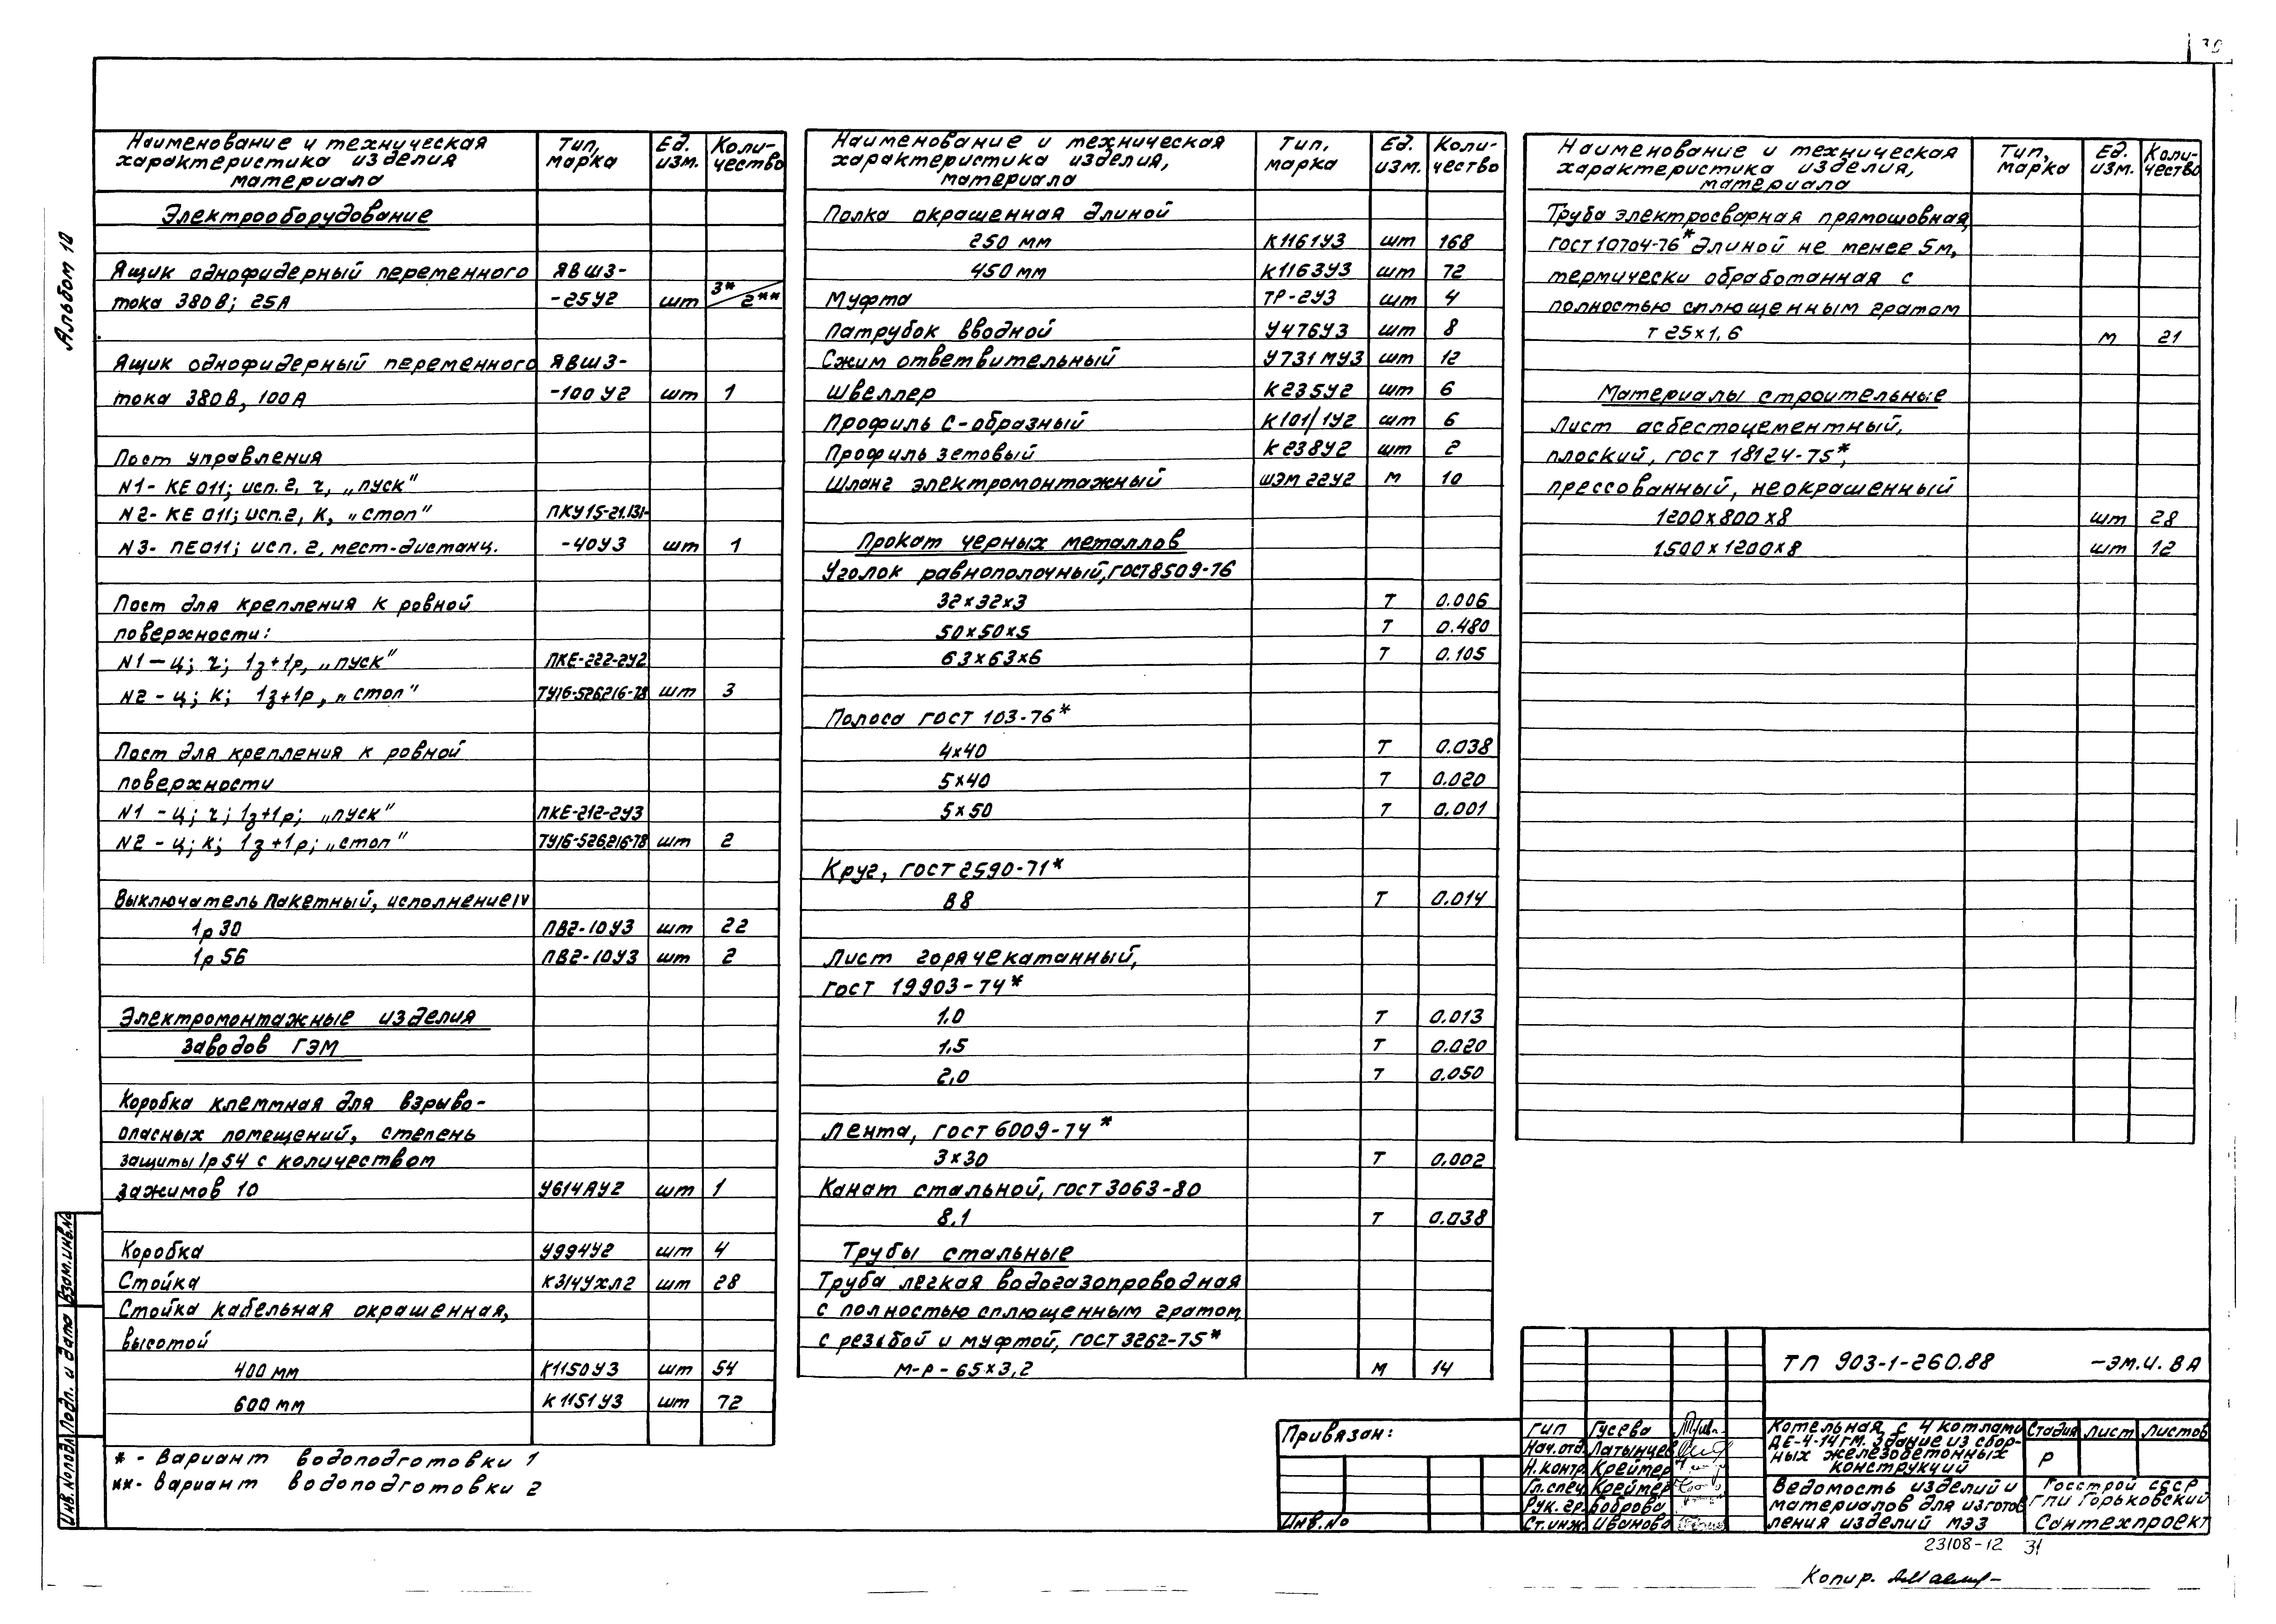 30
Альбом 10
Наименование и техническая характеристика изделия материала | Тип, марка | Ед. изм. | Количество
Электрооборудование
Ящик однофидерный переменного | ЯВШ3-
тока 380В; 25А | -25У2 | шт | 3*/2**
Ящик однофидерный переменного | ЯВШ3-
тока 380В, 100А | -100У2 | шт | 1
Пост управления
N1- КЕ 011; исп. 2, ч, „пуск"
N2- КЕ 011; исп. 2, К, „стоп" | ПКУ15-21.131-
N3- ПЕ011; исп. 2, мест-дистанц. | -40У3 | шт | 1
Пост для крепления к ровной
поверхности:
N1 - ц; ч; 1з+1р, „пуск" | ПКЕ-222-2У2
N2 - ц; К; 1з+1р, „стоп" | ТУ16-526.216-78 | шт | 3
Пост для крепления к ровной
поверхности
N1 - ц; ч; 1з+1р; „пуск" | ПКЕ-212-2У3
N2 - ц; К; 1з+1р; „стоп" | ТУ16-526.216-78 | шт | 2
Выключатель пакетный, исполнение IV
1р 30 | ПВ2-10У3 | шт | 22
1р 56 | ПВ2-10У3 | шт | 2
Электромонтажные изделия
заводов ГЭМ
Коробка клеммная для взрыво-
опасных помещений, степень
защиты 1р54 с количеством
зажимов 10 | У614АУ2 | шт | 1
Коробка | У994У2 | шт | 4
Стойка | К314УХЛ2 | шт | 28
Стойка кабельная окрашенная,
высотой
400 мм | К1150У3 | шт | 54
600 мм | К1151У3 | шт | 72
* - Вариант водоподготовки 1
** - Вариант водоподготовки 2
Наименование и техническая характеристика изделия, материала | Тип, марка | Ед. изм. | Количество
Полка окрашенная длиной
250 мм | К1161У3 | шт | 168
450 мм | К1163У3 | шт | 72
Муфта | ТР-2У3 | шт | 4
Патрубок вводной | У476У3 | шт | 8
Сжим ответвительный | У731МУ3 | шт | 12
Швеллер | К235У2 | шт | 6
Профиль С-образный | К101/1У2 | шт | 6
Профиль зетовый | К238У2 | шт | 2
Шланг электромонтажный | ШЭМ 22У2 | м | 10
Прокат черных металлов
Уголок равнополочный, ГОСТ 8509-76
32×32×3 | Т | 0.006
50×50×5 | Т | 0.480
63×63×6 | Т | 0.105
Полоса ГОСТ 103-76*
4×40 | Т | 0.038
5×40 | Т | 0.020
5×50 | Т | 0.001
Круг, ГОСТ 2590-71*
В8 | Т | 0.014
Лист горячекатанный,
ГОСТ 19903-74*
1.0 | Т | 0.013
1,5 | Т | 0.020
2,0 | Т | 0.050
Лента, ГОСТ 6009-74*
3×30 | Т | 0.002
Канат стальной, ГОСТ 3063-80
8.1 | Т | 0.038
Трубы стальные
Труба легкая водогазопроводная
с полностью сплющенным гратом,
с резьбой и муфтой, ГОСТ 3262-75*
М-Р-65×3,2 | м | 14
Наименование и техническая характеристика изделия, материала | Тип, марка | Ед. изм. | Количество
Труба электросварная прямошовная,
ГОСТ 10704-76* длиной не менее 5м,
термически обработанная с
полностью сплющенным гратом
Т 25×1,6 | м | 21
Материалы строительные
Лист асбестоцементный,
плоский, ГОСТ 18124-75*,
прессованный, неокрашенный
1200×800×8 | шт | 28
1500×1200×8 | шт | 12
Привязан:
Инв.No
ТП 903-1-260.88 -ЭМ.И.ВА
ГИП Гусева
Нач.отд. Латынцев
Н.контр. Креймер
Гл.спец. Креймер
Рук.гр. Боброва
Ст.инж. Иванова
Котельная с 4 котлами
ДЕ-4-14ГМ. Здание из сбор-
ных железобетонных
конструкций
Стадия Лист Листов
Р
Ведомость изделий и
материалов для изготов
ления изделий МЭЗ
Госстрой СССР
ГПИ Горьковский
Сантехпроект
Инв.Nоподл. Подп. и дата Взам.инв.No
23108-12 31
Копир.